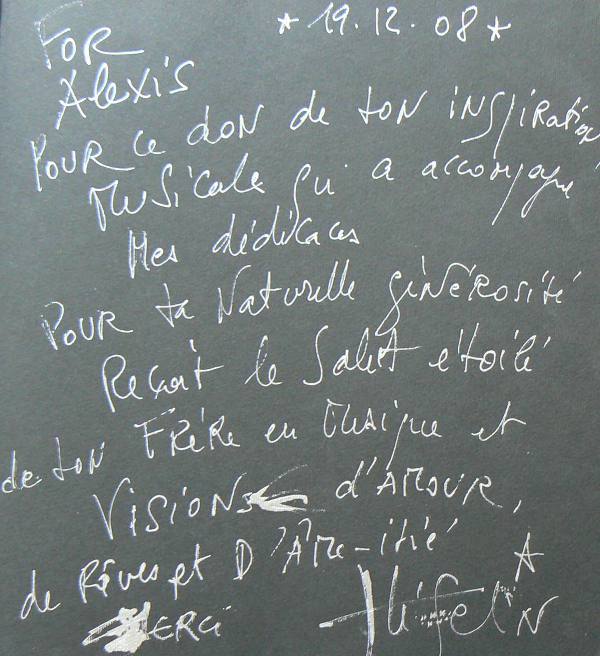 ★ 19.12.08 ★
FOR
Alexis
POUR ce don de ton inspiration
Musicale qui a accompagné
Mes dédicaces
POUR ta Naturelle générosité
Reçoit le Salut étoilé
de ton FRÈRE en Musique et
VISIONS d'AMOUR,
de Rêves et D'Âme-itié
MERCI